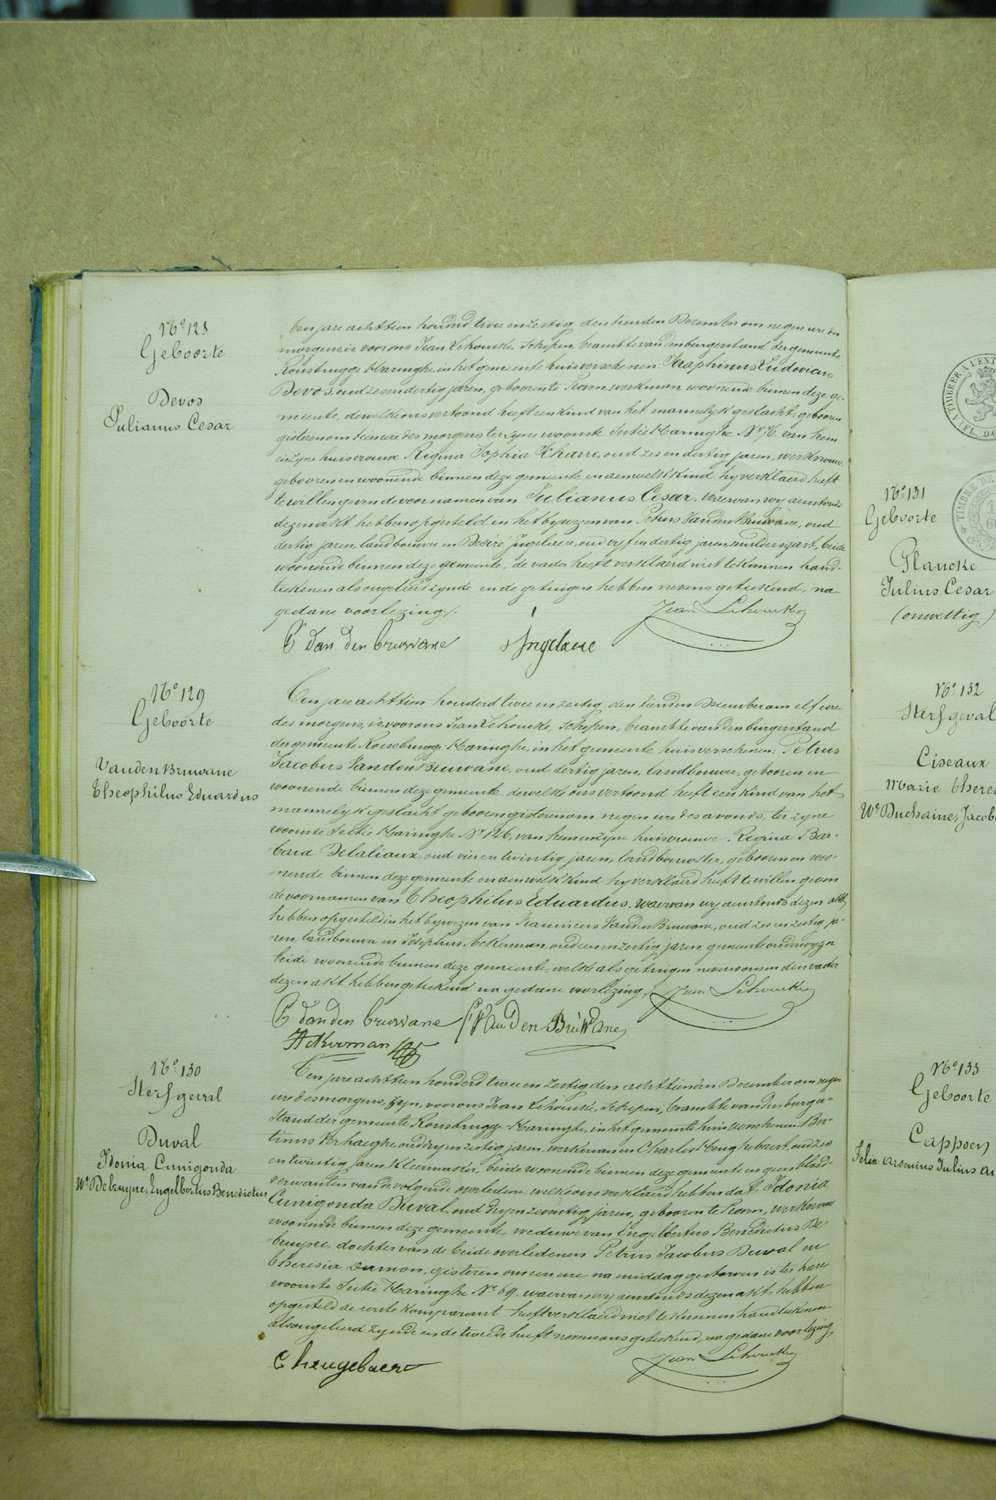 N° 128
Geboorte
Devos
Julianus Cesar
Ten jare achttien honderd twee en zestig, den tienden December om negen ure des
morgens is voor ons Jean Lehoucke, Schepen, beambte van den burgerstand der gemeente
Rousbrugge Haringhe, in het gemeente huis verschenen: Seraphinus Ludovicus
Devos, oud zes en dertig jaren, geboren te Roesen, werkman woonende binnen deze ge-
meente, dewelke ons vertoond heeft een kind van het mannelyk geslacht, geboren
gisteren om ure des morgens ter zyne woonste Sectie Haringhe N° 76, van hem
en zyne huisvrouw Regina Sophia oud zes en dertig jaren, werkvrouw,
geboren en woonende binnen deze gemeente en aen welk kind hy verklaerd heeft
te willen geven de voornamen van Julianus Cesar. waervan wy aenstonds
dezen akt hebben opgesteld in het bywezen van Petrus Vanden Bruwane, oud
dertig jaren, landbouwer en Désiré Ingelaere, oud vyf en dertig jaren, beide
woonende binnen deze gemeente, de vader heeft verklaerd niet te kunnen hand-
teekenen als ongeleerd zynde en de getuigen hebben nevens geteekend, na
gedane voorlezing.
Jean Lehoucke
P Van den bruwane
N° 129
Geboorte
Vanden Bruwane
Theophilus Eduardus
Ten jare achttien honderd twee en zestig den tienden December om elf ure
des morgens, is voor ons Jean Lehoucke, Schepen, beambte van den burgerstand
der gemeente Rousbrugge Haringhe, in het gemeente huis verschenen: Petrus
Jacobus Vanden Bruwane, oud dertig jaren, landbouwer, geboren en
woonende binnen deze gemeente dewelke ons vertoond heeft een kind van het
mannelyk geslacht geboren gisteren om negen ure des avonds, ter zyne
woonste Sectie Haringhe N° 126, van hem en zyne huisvrouw Regina Bar-
bara Delaliaux oud vier en twintig jaren, landbouwster, geboren en woo-
nende binnen deze gemeente en aen welk kind hy verklaerd heeft te willen geven
de voornamen van Theophilus Eduardus, waervan wy aenstonds dezen akt
hebben opgesteld in het bywezen van Franciscus Vanden Bruwane, oud zes en zestig ja-
ren, landbouwer en Josephus Ackerman, oud een en zestig jaren,
beide woonende binnen deze gemeente, welke als getuigen nevens ons en den vader
dezen akt hebben geteekend na gedane voorlezing.
Jean Lehoucke
P Van den bruwane
F Van Den Bruwane
Ackerman
N° 130
Sterfgeval
Duval
Idonia Cunigonda
We Debruyne, Engelbertus Benedictus
Ten jare achttien honderd twee en zestig den achttienden December om negen
ure des morgens, zyn, voor ons Jean Lehoucke, Schepen, beambte van den burger-
stand der gemeente Rousbrugge Haringhe, in het gemeente huis verschenen Be-
Verhaeghe, oud en zestig jaren, werkman en Charles oud zes
en twintig jaren, Kleermaker, beide woonende binnen deze gemeente en geen bloed-
verwanten van de volgende overledene welke ons verklaerd hebben dat Idonia
Cunigonda Duval, oud en zeventig jaren, geboren te werkvrouw
woonende binnen deze gemeente, weduwe van Engelbertus Benedictus De-
bruyne, dochter van de beide overledenen Petrus Jacobus Duval en
Theresia gisteren om een ure na middag gestorven is ter hare
woonste Sectie Haringhe N° 69. waervan wy aenstonds dezen akt hebben
opgesteld de eerste komparant heeft verklaerd niet te kunnen handteekenen
als ongeleerd zynde en de tweede heeft nevens ons geteekend, na gedane voorlezing.
Jean Lehoucke
N° 131
Geboorte
Plancke
Julius Cesar
(onwettig)
N° 132
Sterfgeval
Ciseaux
Marie There
We Duchaine, Jacob
N° 133
Geboorte
Cappoen
Julius